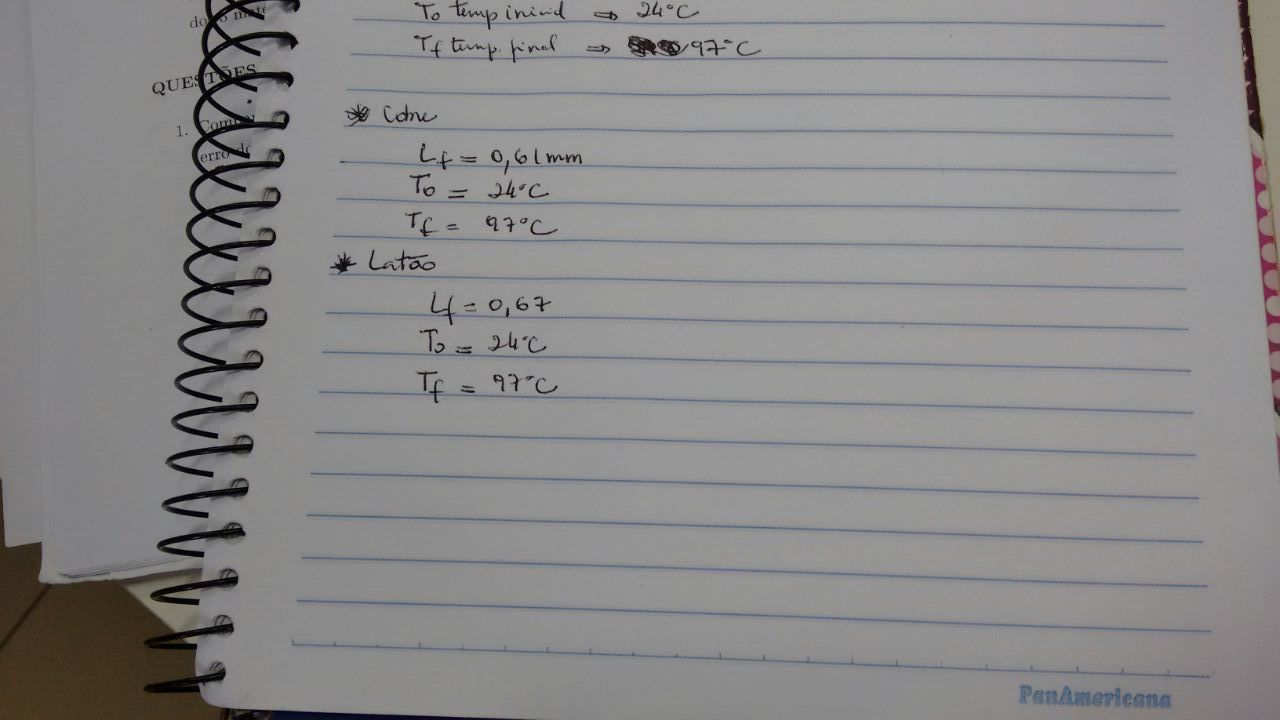 QUESTÕES
1.
T0 temp inicial ⇒ 24°C
Tf temp. final ⇒ 97°C
* Cobre
Lf = 0,61mm
T0 = 24°C
Tf = 97°C
* Latão
Lf = 0,67
T0 = 24°C
Tf = 97°C
PanAmericana